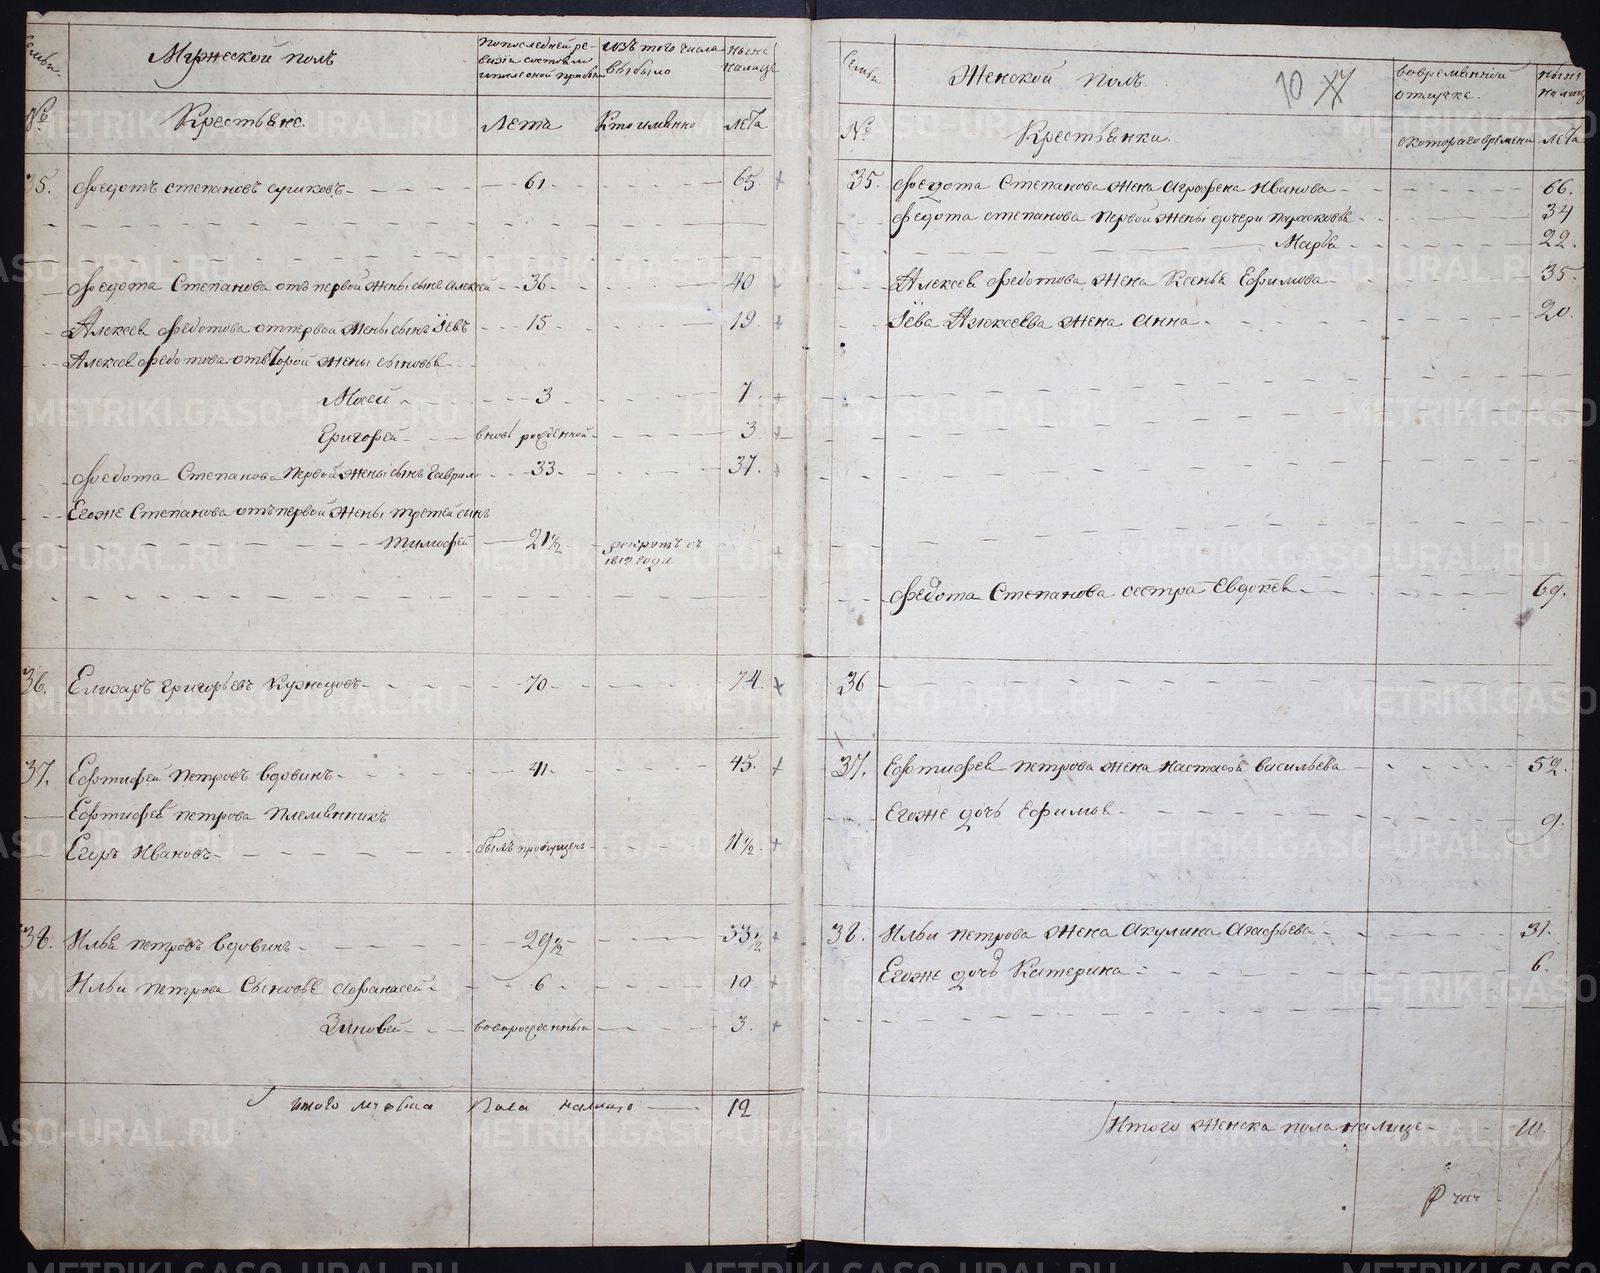 семьи
Мужеской полъ
попоследней ре-
визiи состояло
ипослѣ оной прибыло
изъ того числа
выбыло
ныне
налице
№
Крестьяне.
Лета
Кто именно
лета
35. Федотъ степановъ 61 65
Федота Степанова отъ первой жены сынъ алексей 36 40
Алексея федотова отпервой жены сынъ Iевъ 15 19
Алексея федотова отвторой жены сыновья
Мосей 3 7
Григорей вновь рожденной 3
Федота Степанова первой жены сынъ Гаврило 33 37
Егоже Степанова отъ первой жены третей сынъ
тимофей 21½ рекрутъ съ
1813 года
36. Елизаръ григорьевъ Кузнецовъ 70 74
37. Евтифей петровъ вдовинъ 41 45
Евтифея петрова племянникъ
Егоръ Ивановъ былъ пропущенъ 11½
38. Илья петровъ вдовинъ 29½ 33½
Ильи петрова Сыновья Афанасей 6 10
Зиновей новорожденный 3
итого мужеска Пола налицо 12
семьи
Женской полъ
10
вовременной
отлучке.
ныне
налице
№
Крестьянки.
скотораго времени
лета
35. Федота Степанова жена аграфена Иванова 66.
федота степанова первой жены дочери парасковья 34
Марья 22.
Алексея федотова жена Ксенья Ефимова 35.
Iева Алексеева жена анна 20.
Федота Степанова сестра Евдокея 69.
36
37. Евтифея петрова жена настасья васильева 52.
Егоже дочь Ефимья 9.
38. Ильи петрова жена акулина 31.
Егоже дочь Катерина 6.
Итого женска пола налице 10.
METRIKI.GASO-URAL.RU